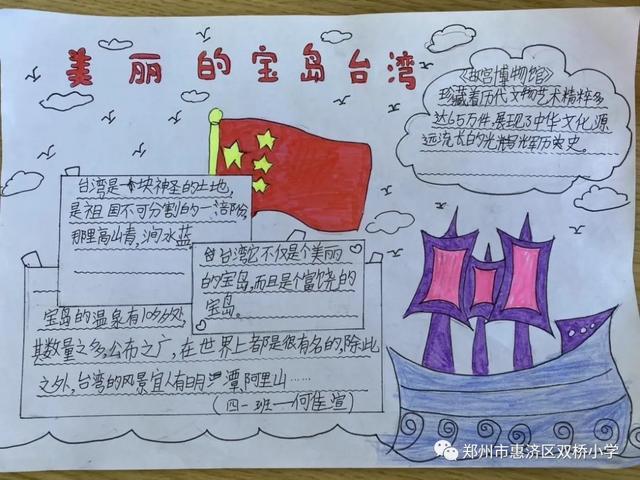 美丽的宝岛台湾
《故宫博物馆》
珍藏着历代文物艺术精粹多
达65万件,展现了中华文化,源
远流长的光辉历史。
台湾是一块神圣的土地,
是祖国不可分割的一部份,
那里高山青,涧水蓝。
台湾它不仅是个美丽
的宝岛,而且是个富饶的
宝岛。
宝岛的温泉有106处,
其数量之多,公布之广,在世界上都是很有名的,除此
之外,台湾的风景宜人有日月潭,阿里山……
(四一班——何佳萱)
郑州市惠济区双桥小学